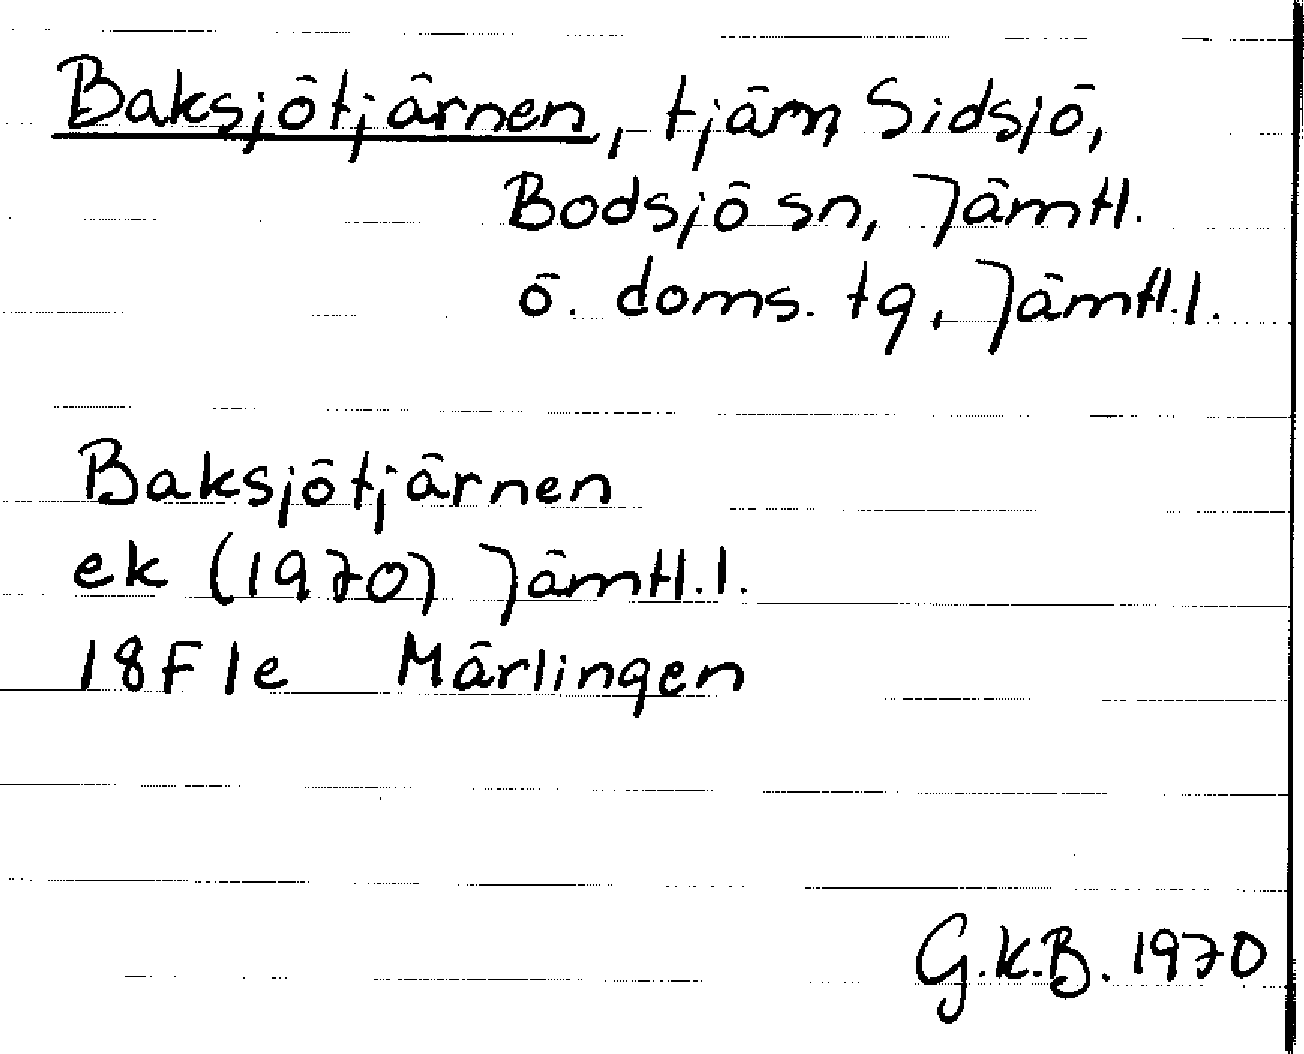 Baksjötjärnen, tjärn Sidsjö,
Bodsjö sn, Jämtl.
ö. doms. tg, Jämtl.l.
Baksjötjärnen
ek (1970) Jämtl.l.
18F1e Märlingen
G.K.B. 1970